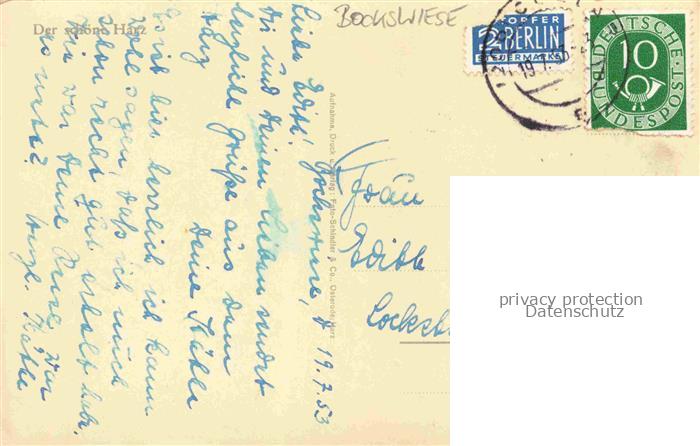 Der schöne Harz
BOCKSWIESE
NOTOPFER
2 BERLIN
STEUERMARKE
19.7.53
DEUTSCHE
10
BUNDESPOST
Aufnahme, Druck u. Verlag: Foto-Schindler & Co., Osterode/Harz
Liebe Edith! Bockswiese, d. 19.7.53
Dir und Deinen Lieben
herzliche Grüße aus dem
Harz Deine Käthe
Es ist hier herrlich ich kann
wohl sagen, daß ich mich
schon recht gut erholt habe.
Wie war Deine Reise, war
Herzl. Käthe
Frau
Edith
privacy protection
Datenschutz